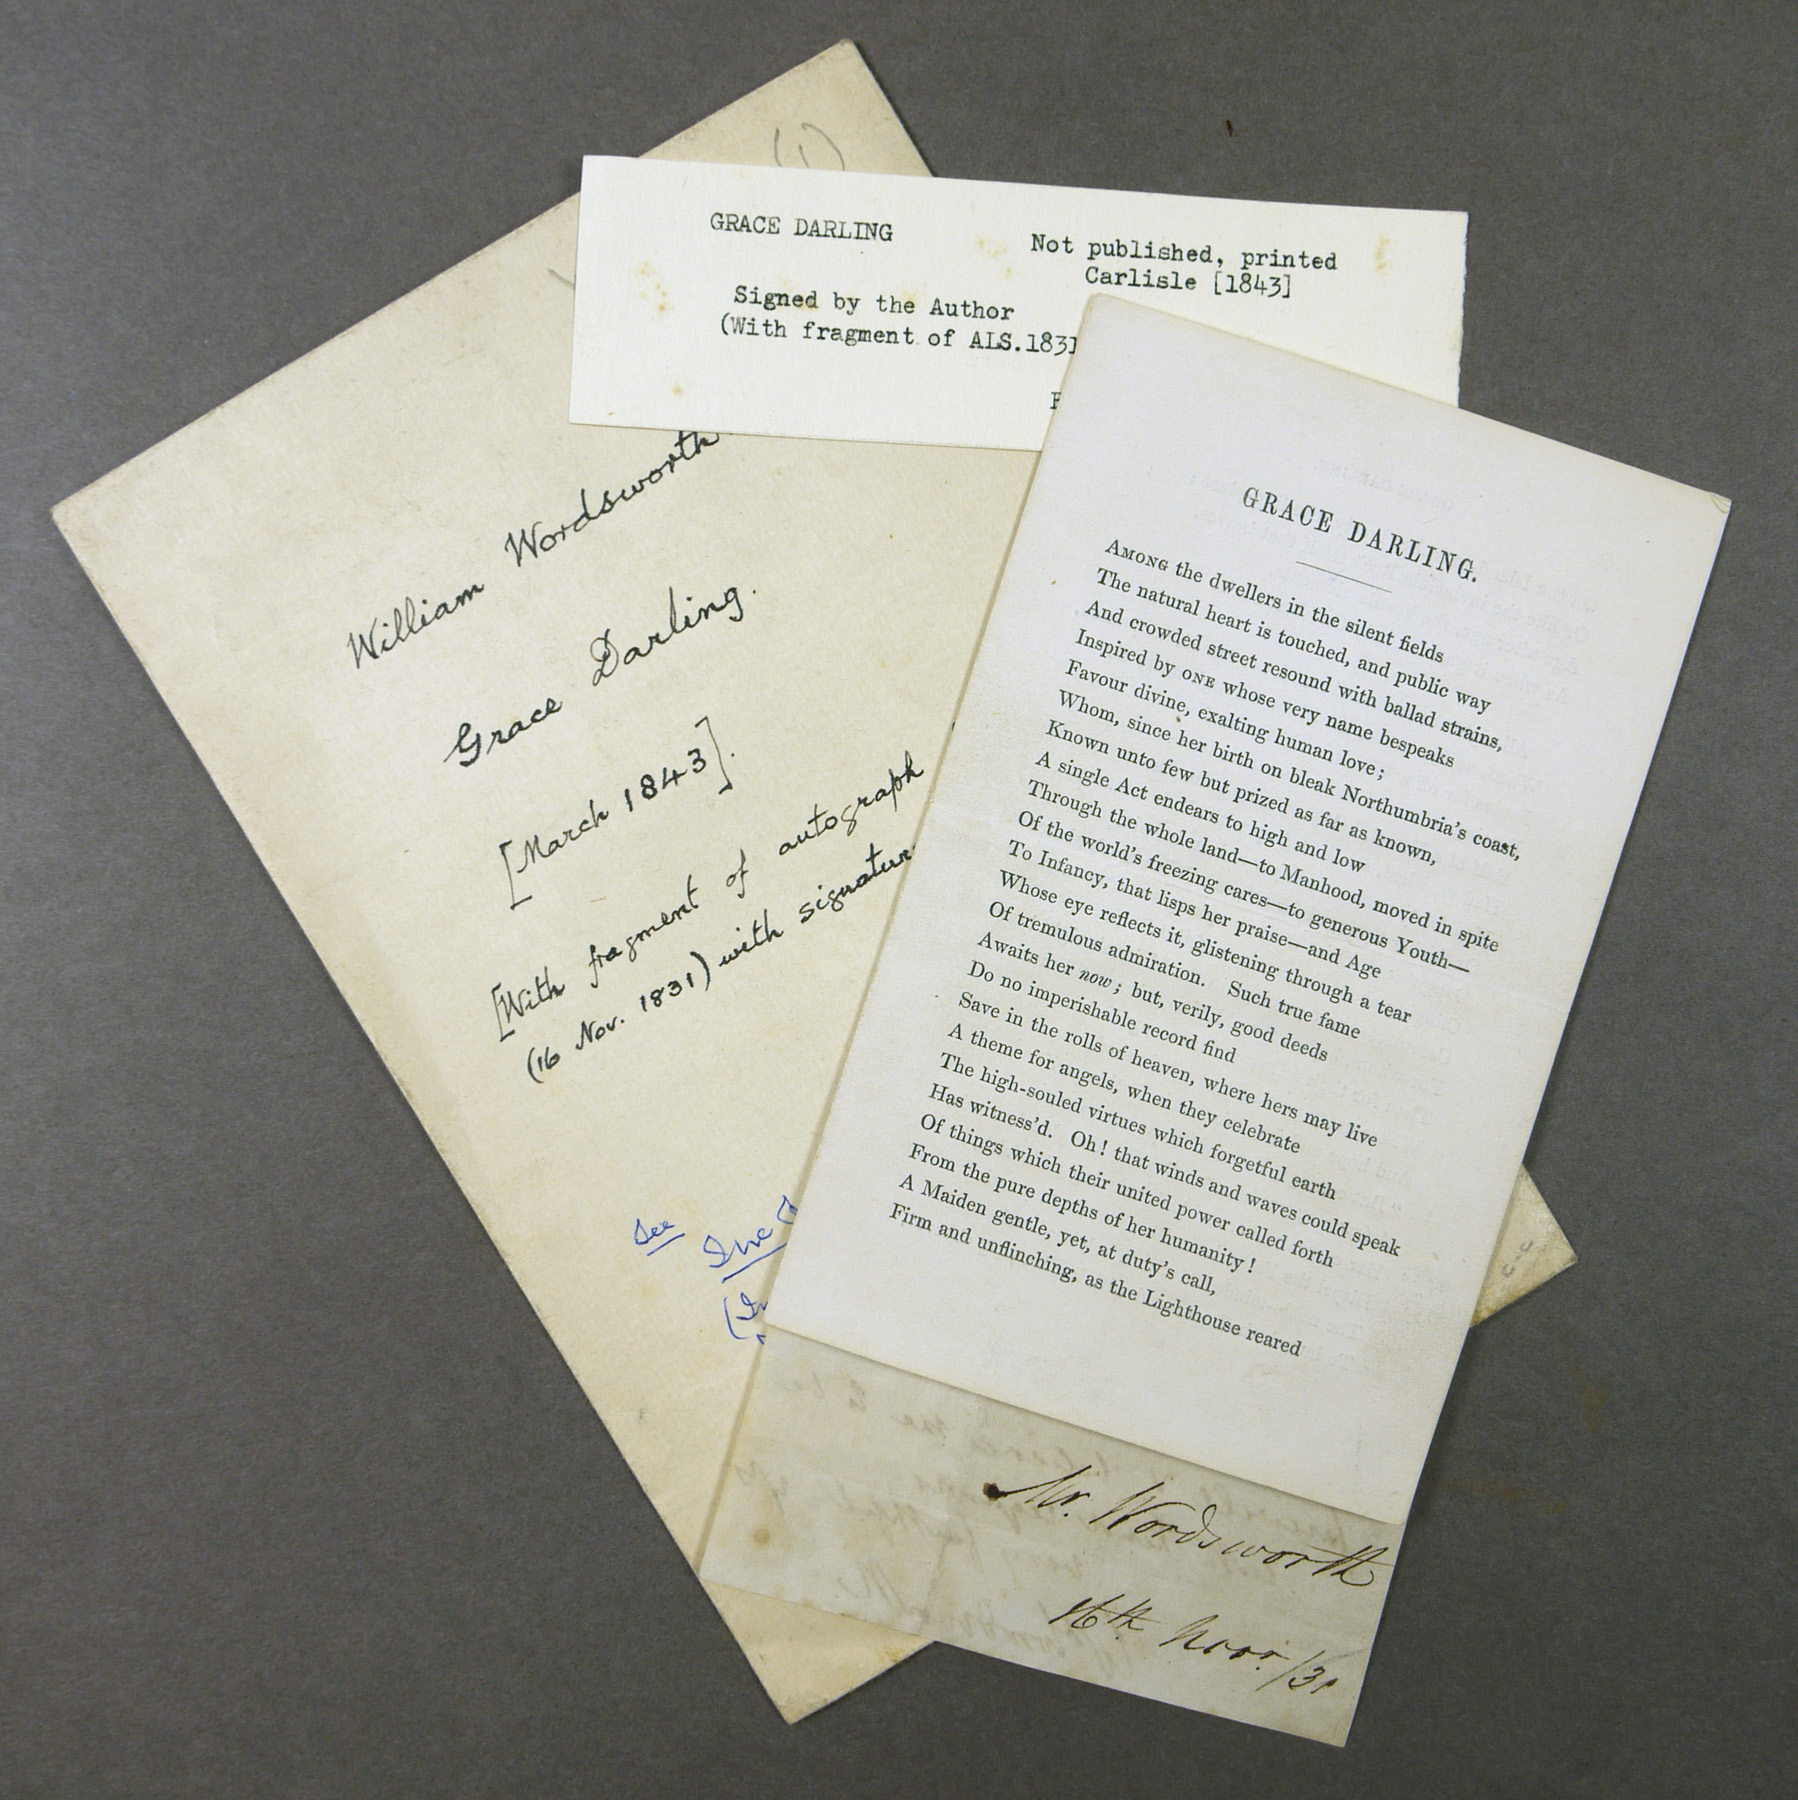 (1)
GRACE DARLING
Not published, printed
Carlisle [1843]
Signed by the Author
(With fragment of ALS.1831
William Wordsworth
Grace Darling.
[March 1843].
[With fragment of autograph
(16 Nov. 1831) with signatur
See
GRACE DARLING.
AMONG the dwellers in the silent fields
The natural heart is touched, and public way
And crowded street resound with ballad strains,
Inspired by ONE whose very name bespeaks
Favour divine, exalting human love;
Whom, since her birth on bleak Northumbria's coast,
Known unto few but prized as far as known,
A single Act endears to high and low
Through the whole land—to Manhood, moved in spite
Of the world's freezing cares—to generous Youth—
To Infancy, that lisps her praise—and Age
Whose eye reflects it, glistening through a tear
Of tremulous admiration. Such true fame
Awaits her now; but, verily, good deeds
Do no imperishable record find
Save in the rolls of heaven, where hers may live
A theme for angels, when they celebrate
The high-souled virtues which forgetful earth
Has witness'd. Oh! that winds and waves could speak
Of things which their united power called forth
From the pure depths of her humanity!
A Maiden gentle, yet, at duty's call,
Firm and unflinching, as the Lighthouse reared
Mr. Wordsworth
16th Novr. /31